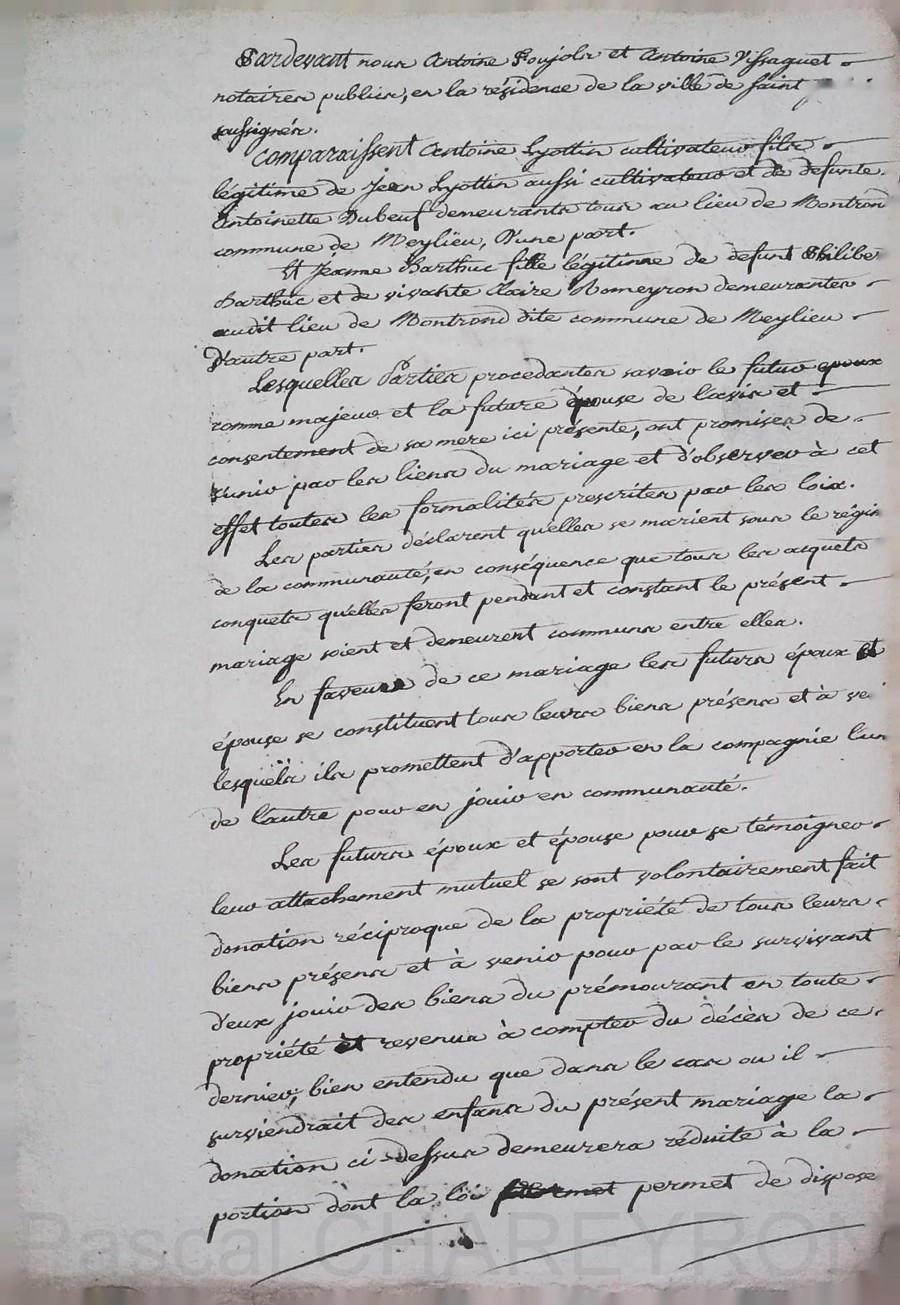 Pardevant nous Antoine Poujols et Antoine Vissaguet
notaires publics, en la résidence de la ville de saint
soussignés.
Comparaissent Antoine Lyottin cultivateur fils
légitime de Jean Lyottin aussi cultivateur et de defunte
Antoinette Dubeuf demeurants tous au lieu de Montrond
commune de Meylieu, D'une part.
Et Jeanne Barthuc fille légitime de defunt Philibe
Barthuc et de vivante Claire Romeyron demeurantes
audit lieu de Montrond dite commune de Meylieu
D'autre part.
Lesquelles Parties procedantes savoir le futur epoux
comme majeur et la future épouse de l'avis et
consentement de sa mere ici présente, ont promises de
s'unir par les liens du mariage et d'observer à cet
effet toutes les formalités prescrites par les loix.
Les parties déclarent qu'elles se marient sous le régim
de la communauté, en conséquence que tous les acquets
conquets qu'elles feront pendant et constant le présent
mariage soient et demeurent communs entre elles.
En faveur de ce mariage les futurs époux et
épouse se constituent tous leurs biens présens et à ve
lesquels ils promettent d'apporter en la compagnie l'un
de l'autre pour en jouir en communauté.
Les futurs époux et épouse pour se témoigner
leur attachement mutuel se sont volontairement fait
donation réciproque de la propriété de tous leurs
biens présens et à venir pour par le survivant
d'eux jouir des biens du prémourant en toute
propriété et revenus à compter du décès de ce
dernier, bien entendu que dans le cas ou il
surviendrait des enfans du présent mariage la
donation ci-dessus demeurera réduite à la
portion dont la loi permet de dispose
Pascal CHAREYRON